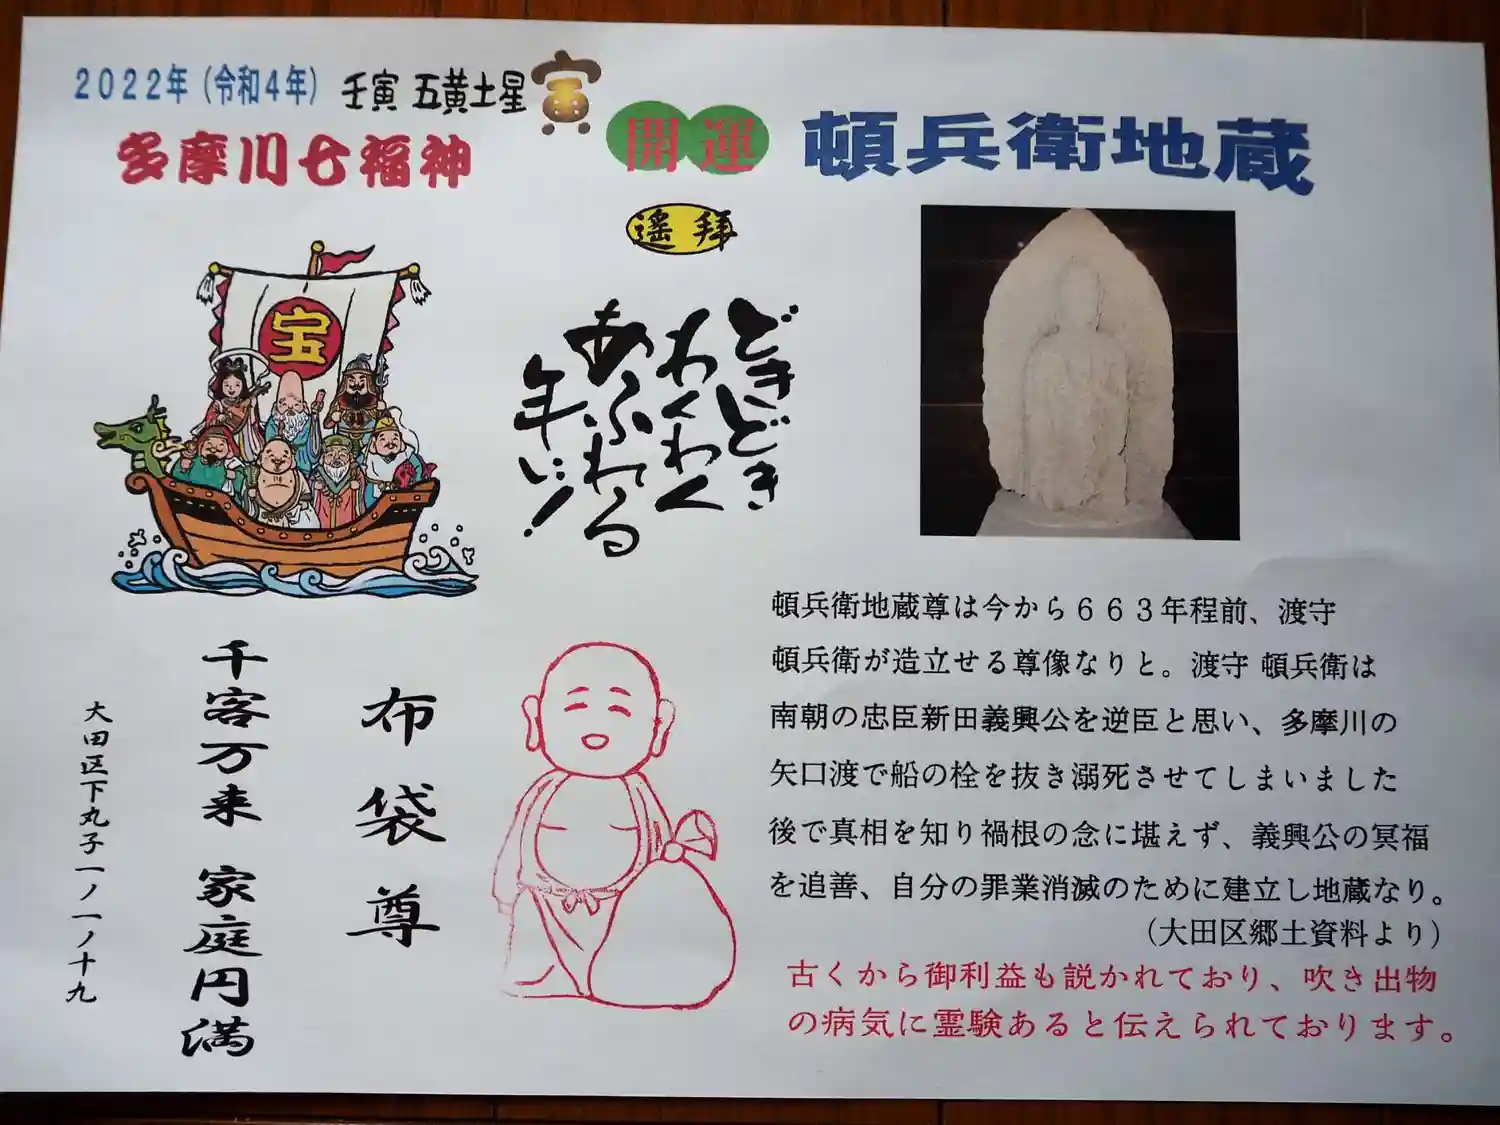 2022年(令和4年) 壬寅 五黄土星 寅
多摩川七福神
開運 頓兵衛地蔵
遥拝
宝
どきどき
わくわく
あふれる
年に!
頓兵衛地蔵尊は今から663年程前、渡守
頓兵衛が造立せる尊像なりと。渡守 頓兵衛は
南朝の忠臣新田義興公を逆臣と思い、多摩川の
矢口渡で船の栓を抜き溺死させてしまいました
後で真相を知り禍根の念に堪えず、義興公の冥福
を追善、自分の罪業消滅のために建立し地蔵なり。
(大田区郷土資料より)
古くから御利益も説かれており、吹き出物
の病気に霊験あると伝えられております。
布袋尊
千客万来 家庭円満
大田区下丸子一ノ一ノ十九